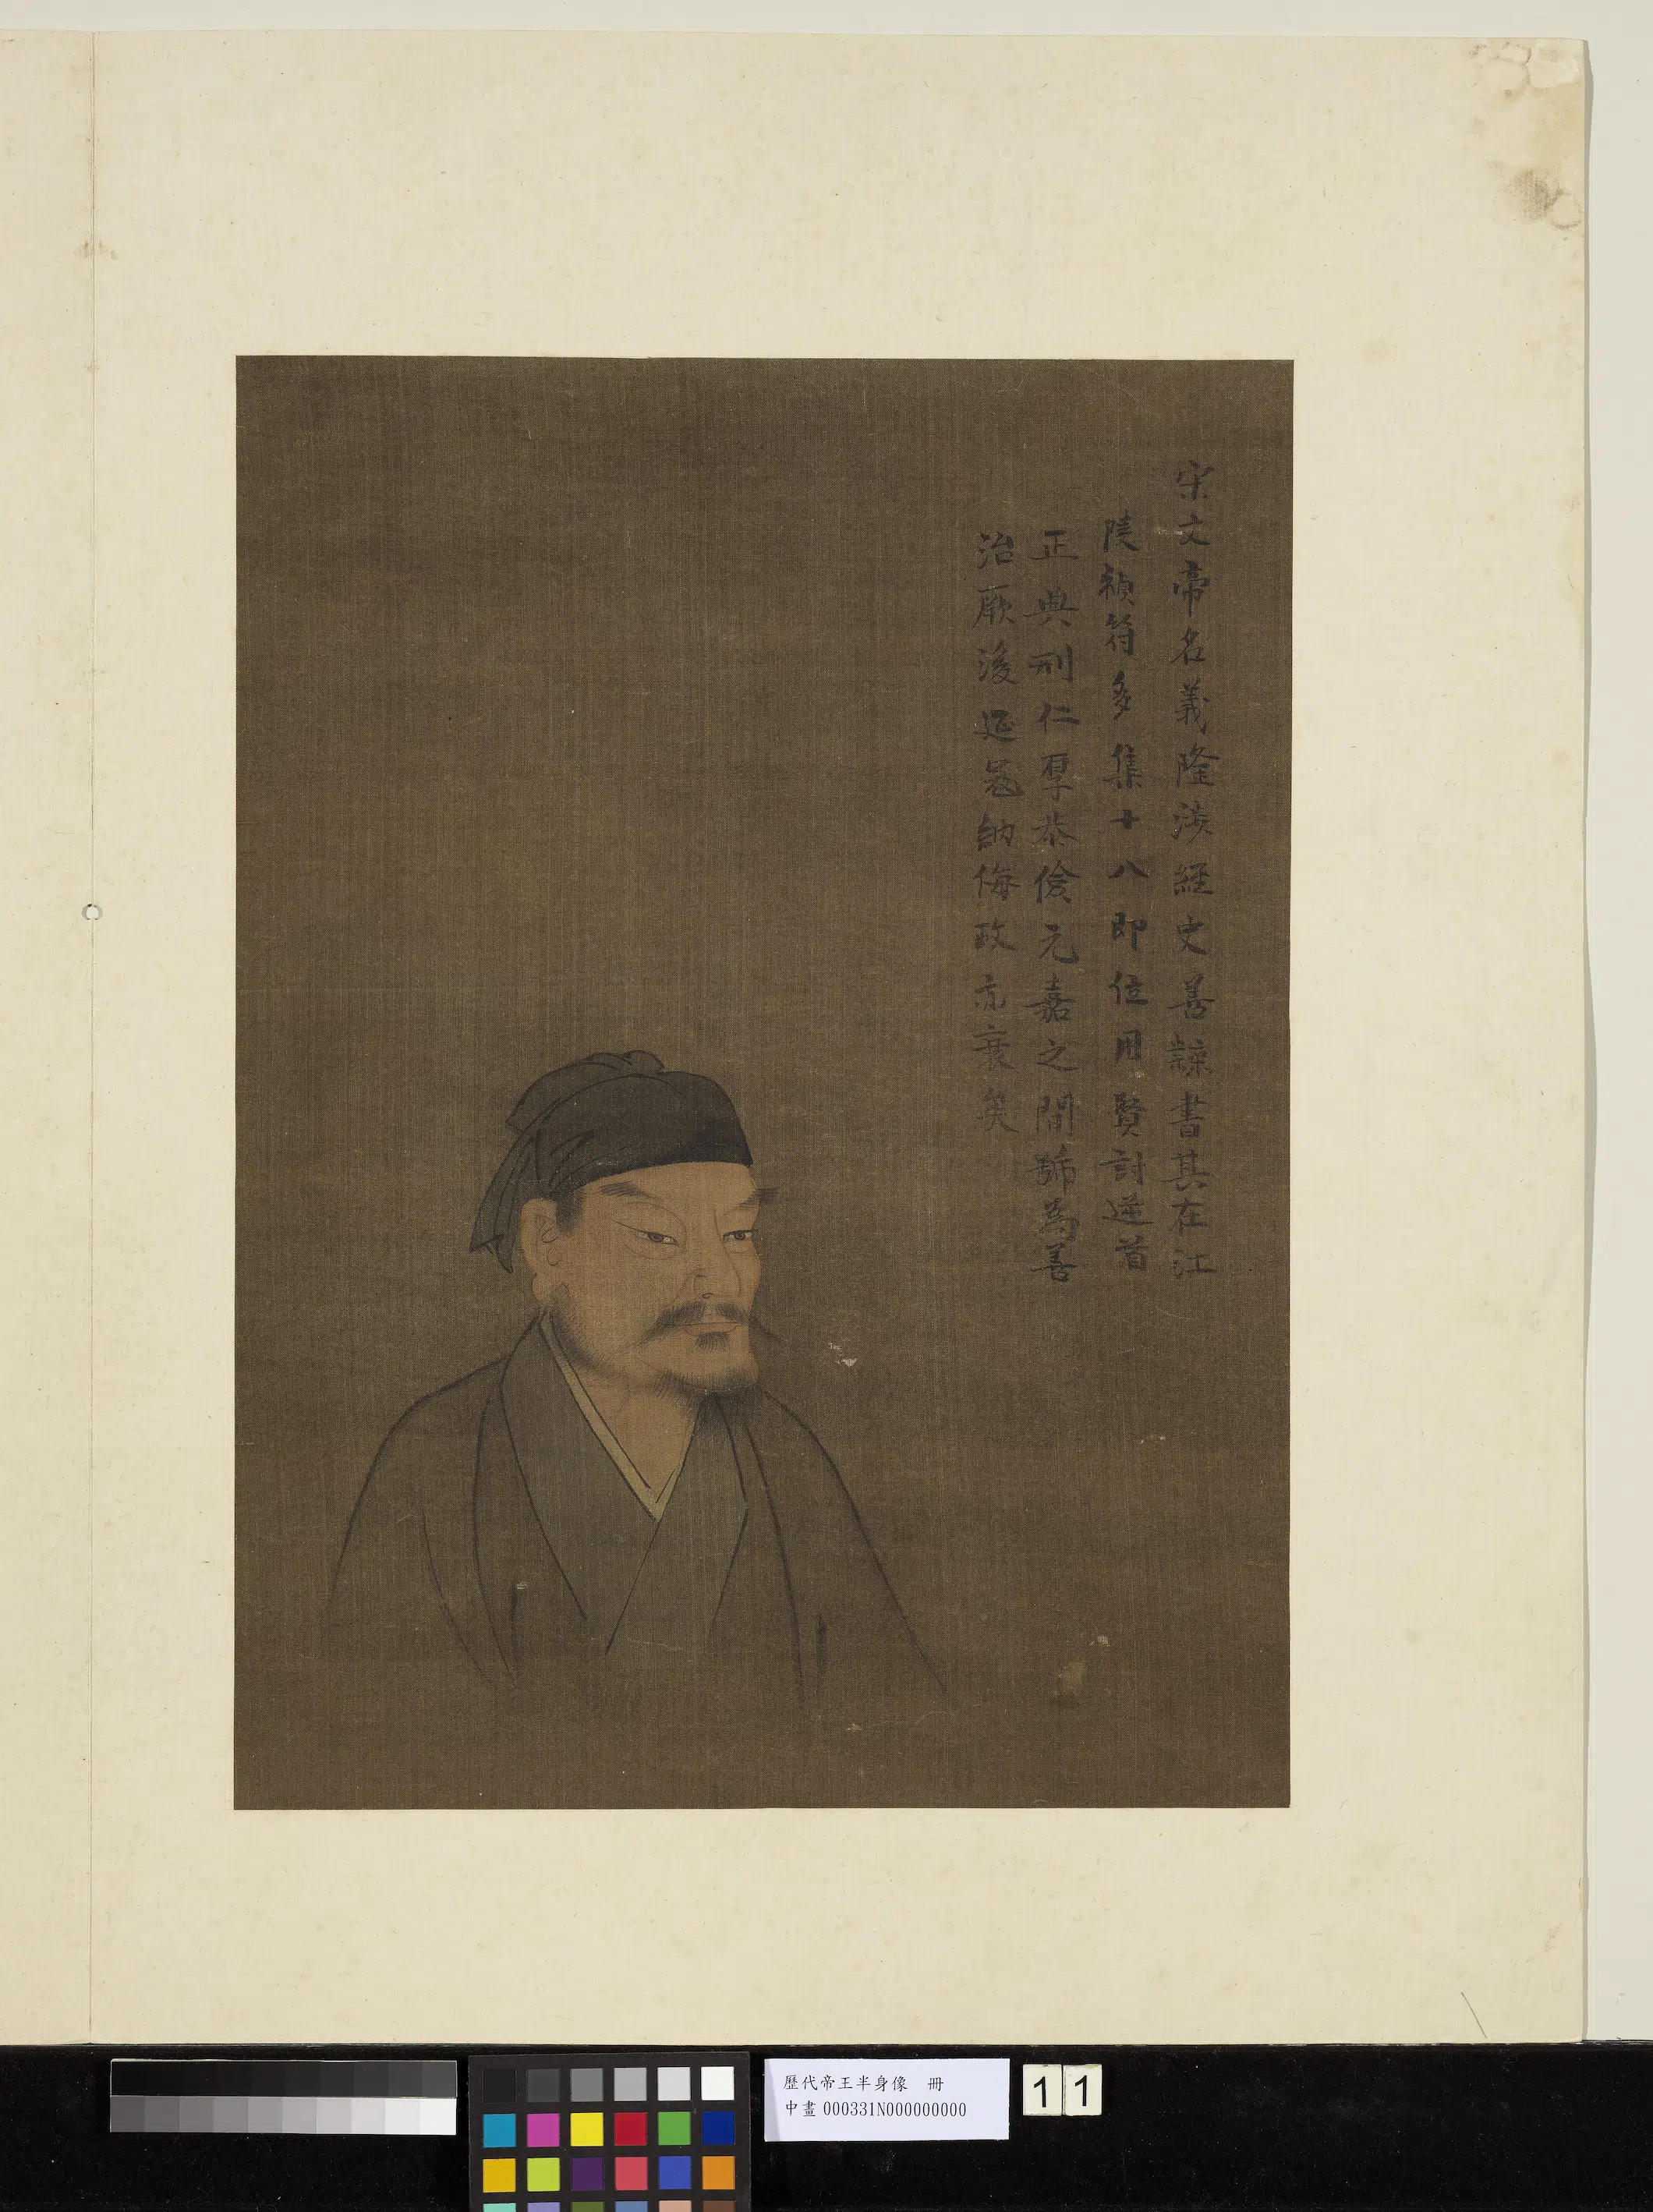 宋文帝名義隆涉經史善隸書其在江
陵禎符多集十八即位用賢討逆首
正典刑仁厚恭儉元嘉之間號為善
治厥後延寇納侮政亦衰矣
歷代帝王半身像 冊
中畫000331N000000000
11